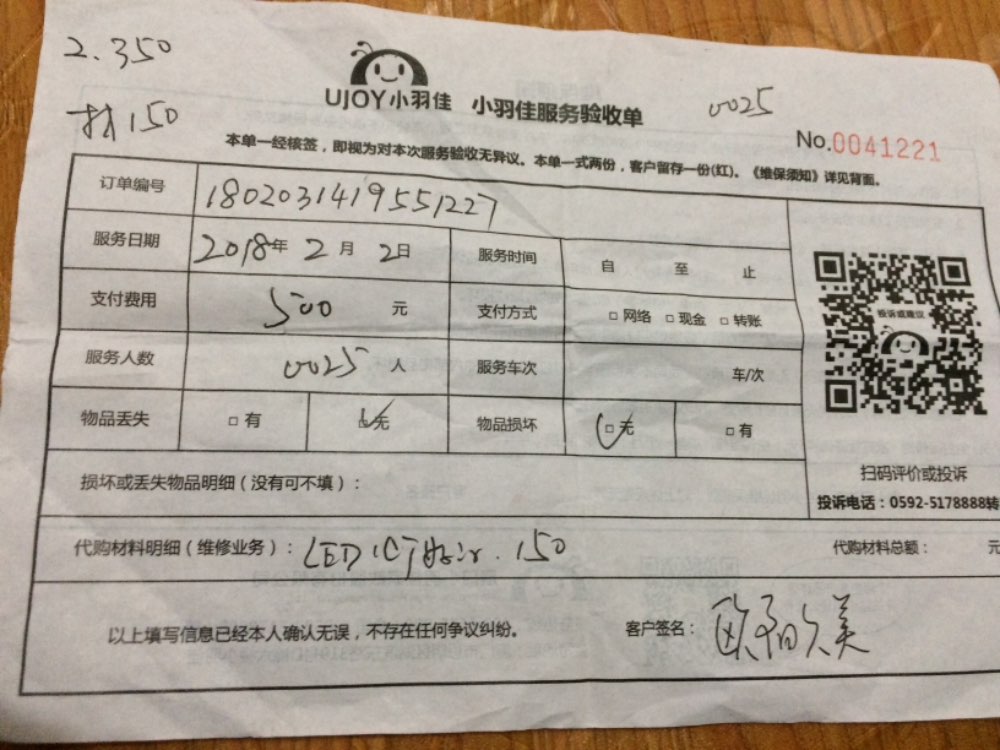 2.350
材150
UJOY小羽佳 小羽佳服务验收单
0025
No.0041221
本单一经核签，即视为对本次服务验收无异议。本单一式两份，客户留存一份(红)。《维保须知》详见背面。
订单编号 1802031419551227
服务日期 2018年2月2日 服务时间 自 至 止
支付费用 500 元 支付方式 □网络 □现金 □转账
投诉或建议
服务人数 0025 人 服务车次 车/次
物品丢失 □有 □无 物品损坏 □无 □有
扫码评价或投诉
损坏或丢失物品明细（没有可不填）：
投诉电话：0592-5178888转
代购材料明细（维修业务）：LED 150
代购材料总额： 元
以上填写信息已经本人确认无误，不存在任何争议纠纷。
客户签名：欧 美